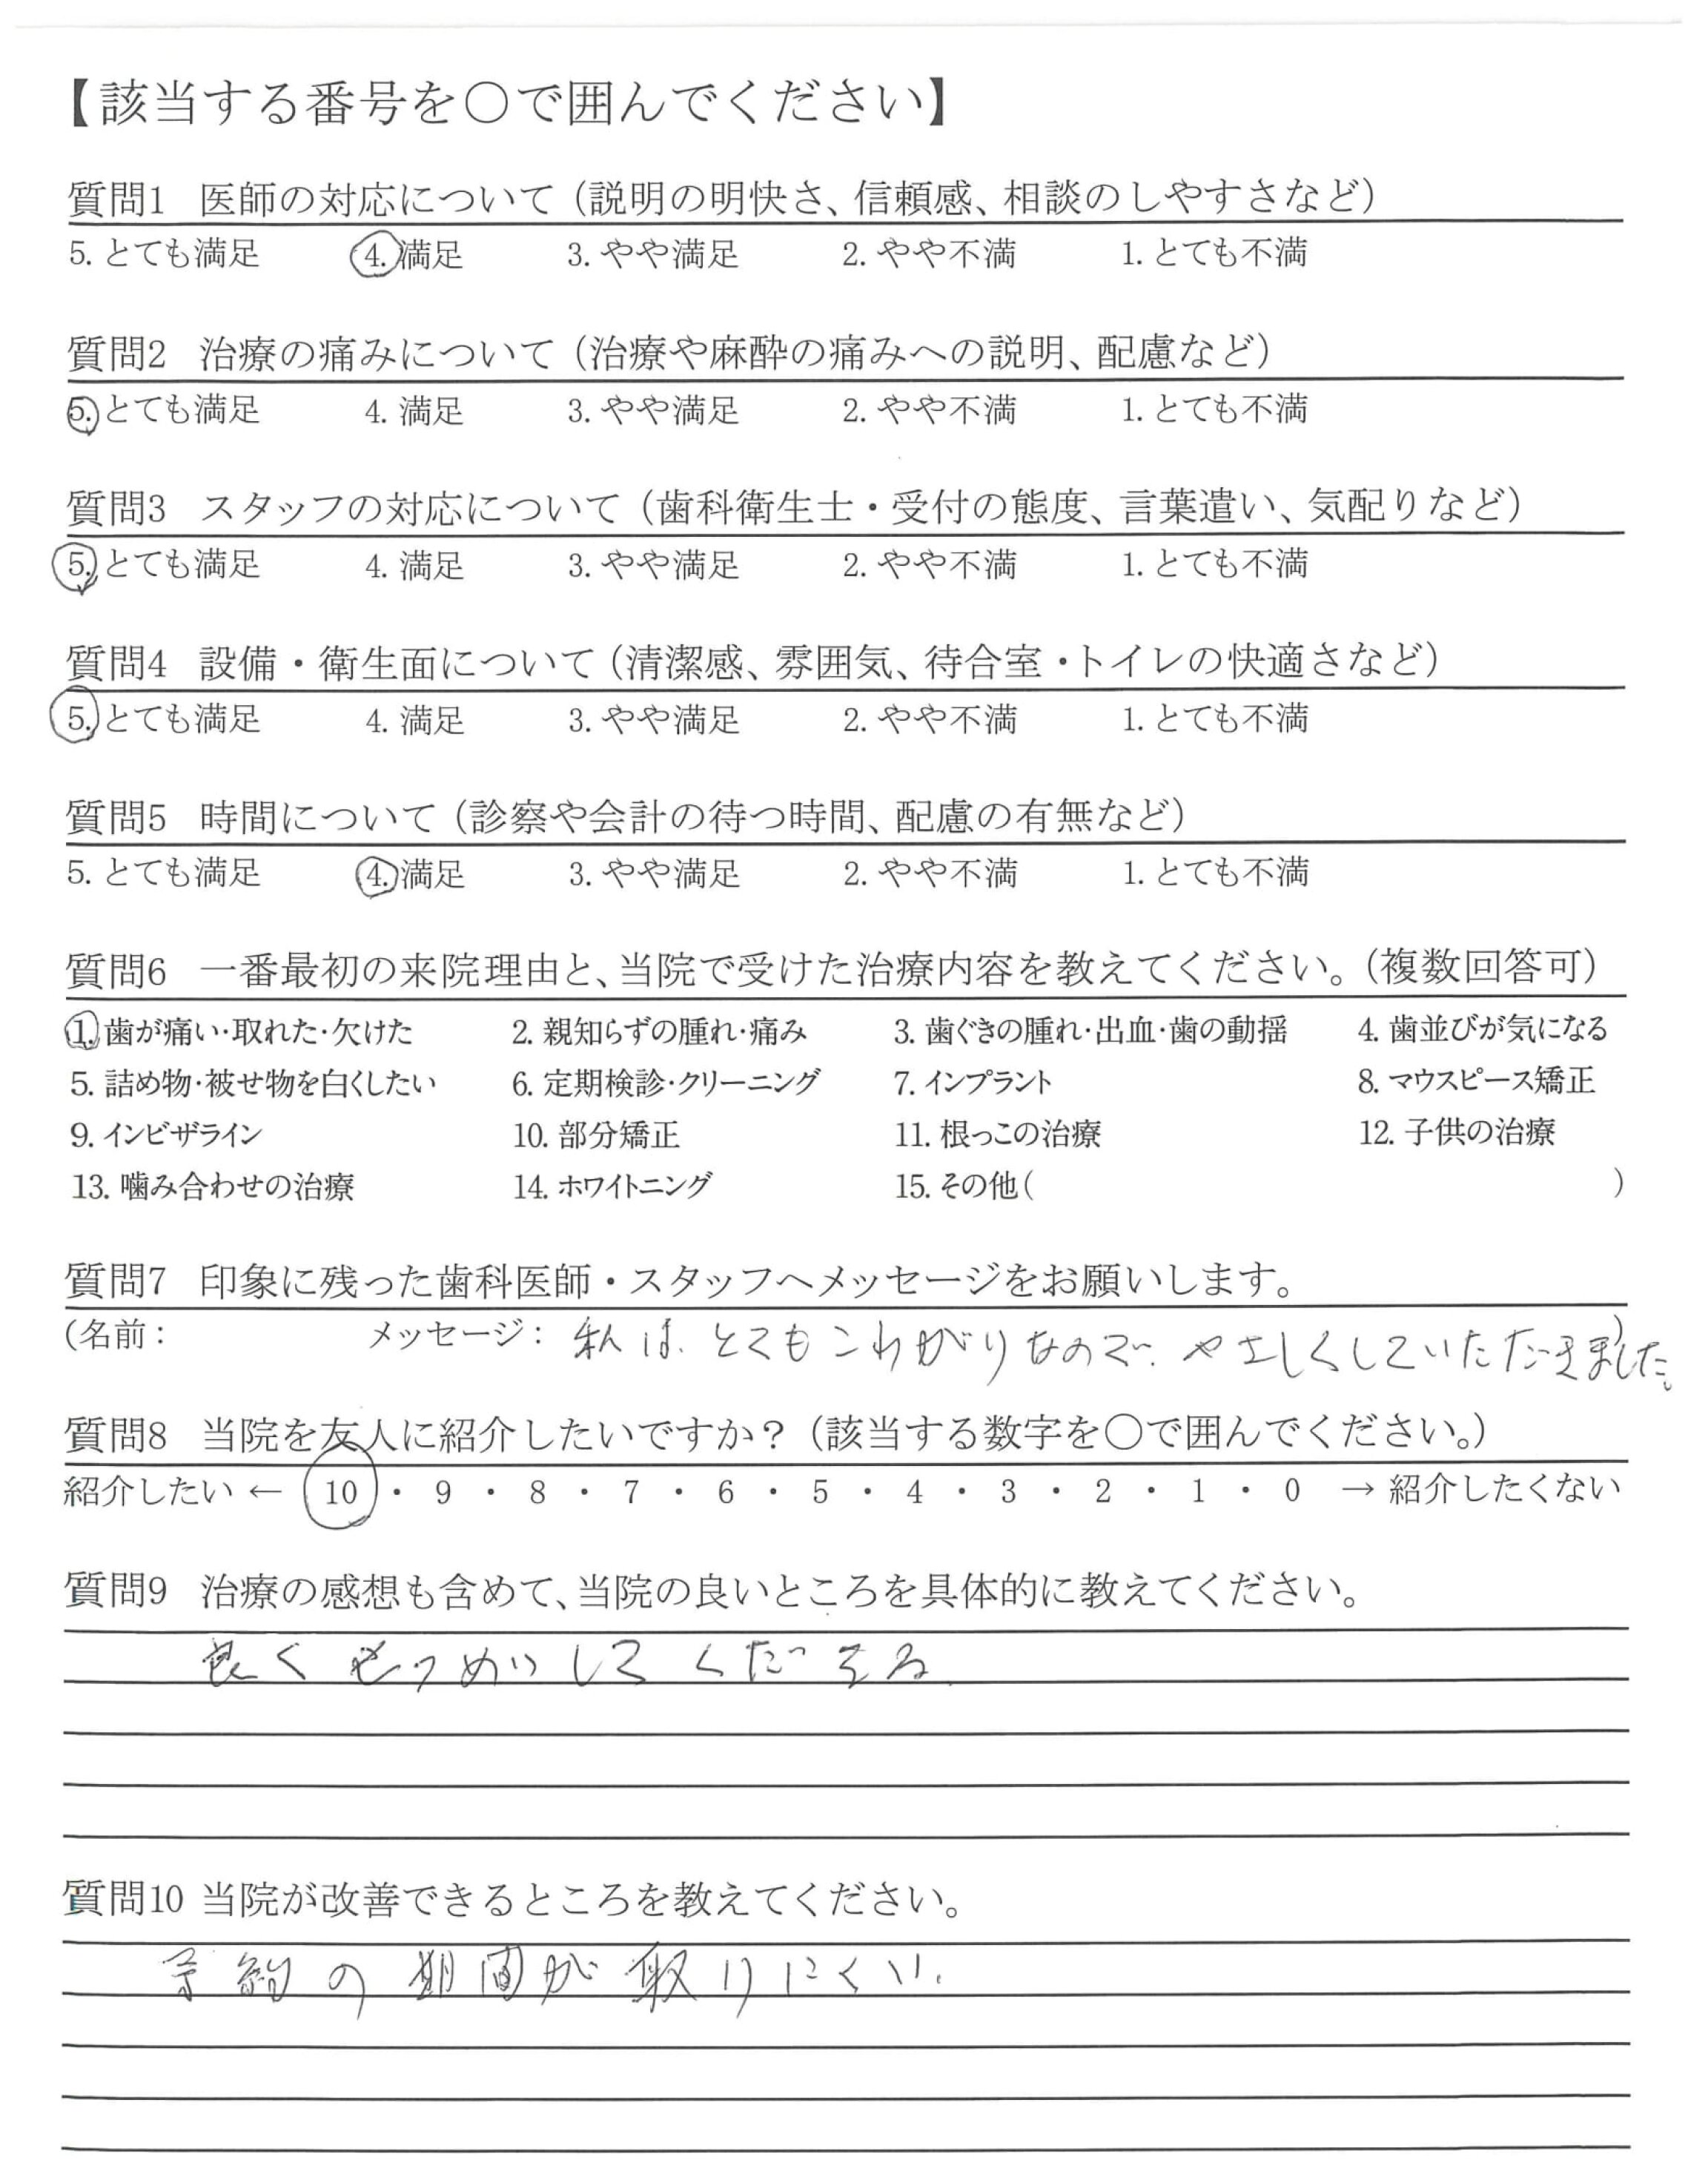 【該当する番号を○で囲んでください】
質問1 医師の対応について（説明の明快さ、信頼感、相談のしやすさなど）
5. とても満足 4. 満足 3. やや満足 2. やや不満 1. とても不満
質問2 治療の痛みについて（治療や麻酔の痛みへの説明、配慮など）
5. とても満足 4. 満足 3. やや満足 2. やや不満 1. とても不満
質問3 スタッフの対応について（歯科衛生士・受付の態度、言葉遣い、気配りなど）
5. とても満足 4. 満足 3. やや満足 2. やや不満 1. とても不満
質問4 設備・衛生面について（清潔感、雰囲気、待合室・トイレの快適さなど）
5. とても満足 4. 満足 3. やや満足 2. やや不満 1. とても不満
質問5 時間について（診察や会計の待つ時間、配慮の有無など）
5. とても満足 4. 満足 3. やや満足 2. やや不満 1. とても不満
質問6 一番最初の来院理由と、当院で受けた治療内容を教えてください。（複数回答可）
1. 歯が痛い・取れた・欠けた 2. 親知らずの腫れ・痛み 3. 歯ぐきの腫れ・出血・歯の動揺 4. 歯並びが気になる
5. 詰め物・被せ物を白くしたい 6. 定期検診・クリーニング 7. インプラント 8. マウスピース矯正
9. インビザライン 10. 部分矯正 11. 根っこの治療 12. 子供の治療
13. 噛み合わせの治療 14. ホワイトニング 15. その他（ ）
質問7 印象に残った歯科医師・スタッフへメッセージをお願いします。
（名前： メッセージ： 私は、とてもこわがりなので、やさしくしていただきました。）
質問8 当院を友人に紹介したいですか？（該当する数字を○で囲んでください。）
紹介したい ← 10 ・ 9 ・ 8 ・ 7 ・ 6 ・ 5 ・ 4 ・ 3 ・ 2 ・ 1 ・ 0 → 紹介したくない
質問9 治療の感想も含めて、当院の良いところを具体的に教えてください。
良く せつめい してくださる
質問10 当院が改善できるところを教えてください。
予約の期間が取りにくい。